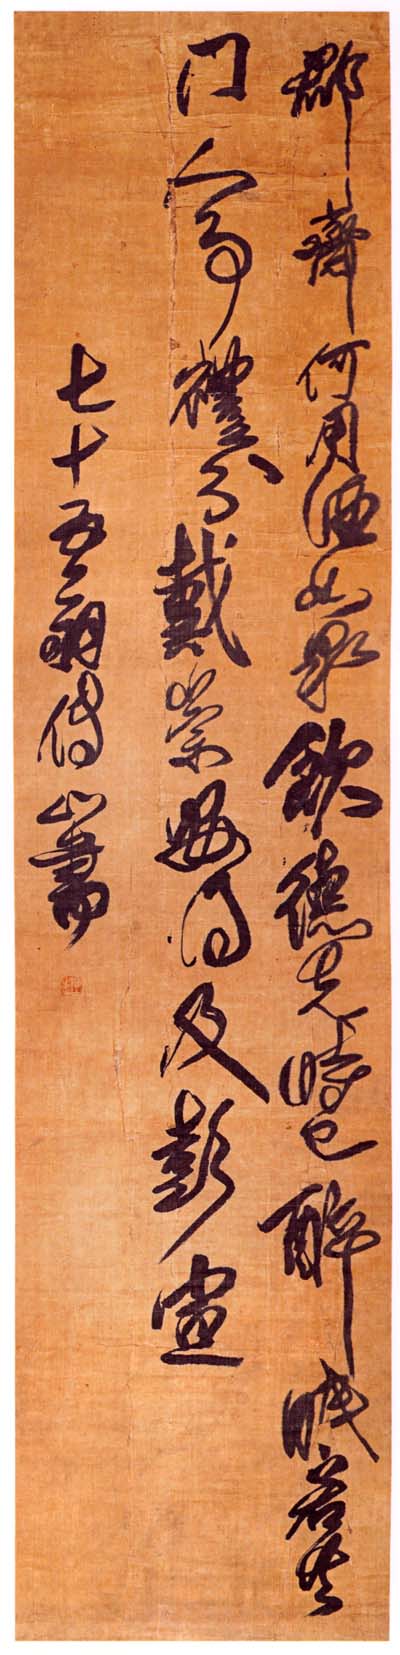 郡齋何用酒如泉飲德先時已醉眠若共
門人禮分戴崇得及彭宣
七十五翁傅山書